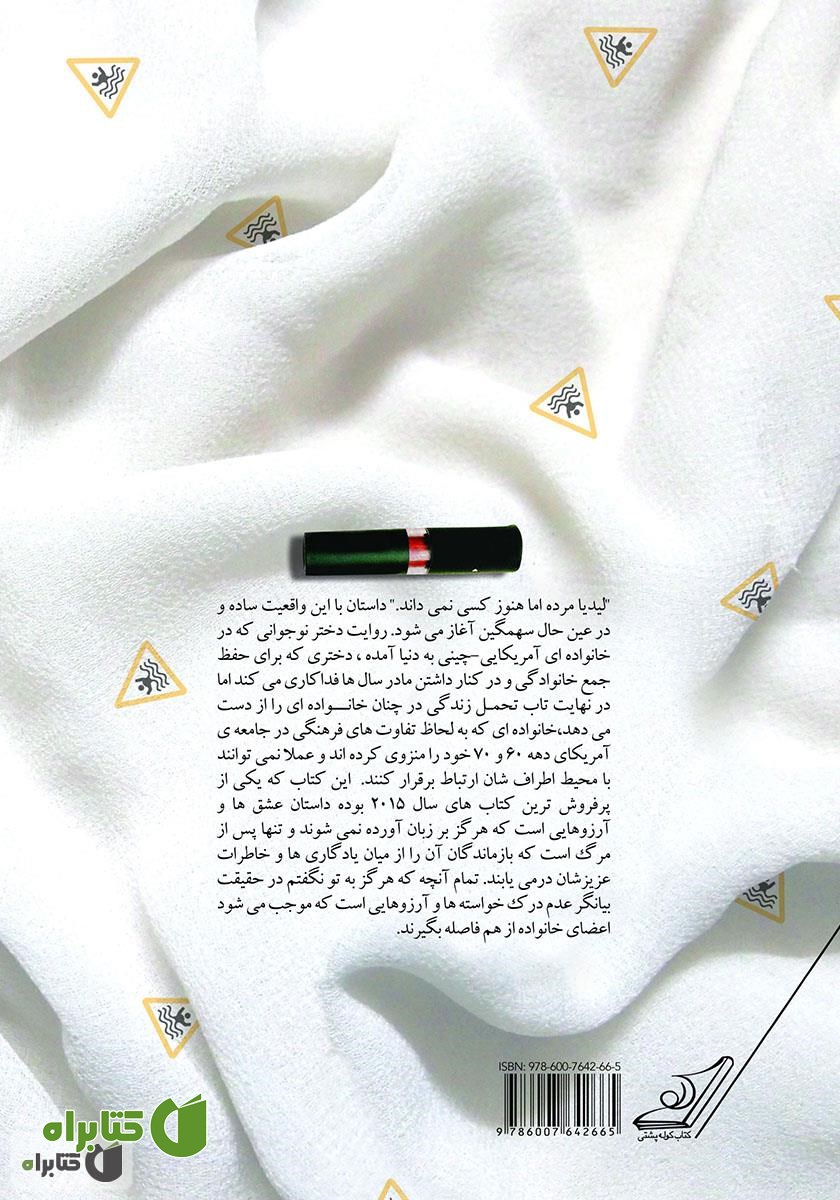 "لیدیا مرده اما هنوز کسی نمی داند." داستان با این واقعیت ساده و
در عین حال سهمگین آغاز می شود. روایت دختر نوجوانی که در
خانواده ای آمریکایی–چینی به دنیا آمده ، دختری که برای حفظ
جمع خانوادگی و در کنار داشتن مادر سال ها فداکاری می کند اما
در نهایت تاب تحمل زندگی در چنان خانواده ای را از دست
می دهد،خانواده ای که به لحاظ تفاوت های فرهنگی در جامعه ی
آمریکای دهه ۶۰ و ۷۰ خود را منزوی کرده اند و عملا نمی توانند
با محیط اطراف شان ارتباط برقرار کنند. این کتاب که یکی از
پرفروش ترین کتاب های سال ۲۰۱۵ بوده داستان عشق ها و
آرزوهایی است که هرگز بر زبان آورده نمی شوند و تنها پس از
مرگ است که بازماندگان آن را از میان یادگاری ها و خاطرات
عزیزشان درمی یابند. تمام آنچه که هرگز به تو نگفتم در حقیقت
بیانگر عدم درک خواسته ها و آرزوهایی است که موجب می شود
اعضای خانواده از هم فاصله بگیرند.
ISBN: 978-600-7642-66-5
9 786007 642665
کتاب کوله پشتی
کتابراه
کتابراه